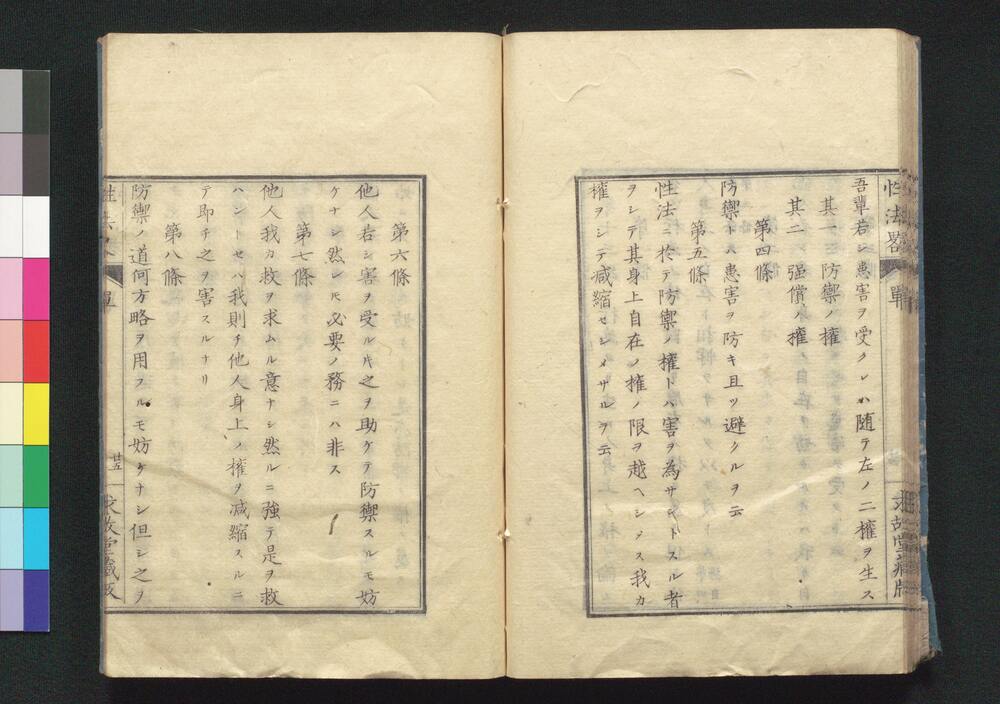 性法畧
單
求故堂藏版
吾輩若シ患害ヲ受クレハ随テ左ノ二權ヲ生ス
其一 防禦ノ權
其二 强償ノ權
第四條
防禦トハ患害ヲ防キ且ツ避クルヲ云
第五條
性法ニ於テ防禦ノ權トハ害ヲ為サントスル者
ヲシテ其身上自在ノ權ノ限ヲ越ヘシメス我カ
權ヲシテ減縮セシメサルヲ云
第六條
他人若シ害ヲ受ル𪜈之ヲ助ケテ防禦スルモ妨
ケナシ然レ𪜈必要ノ務ニハ非ス
第七條
他人我カ救ヲ求ムル意ナシ然ルニ強テ是ヲ救
ハントセハ我則チ他人身上ノ權ヲ減縮スルニ
テ即チ之ヲ害スルナリ
第八條
防禦ノ道何方略ヲ用フルモ妨ケナシ但シ之ヲ
性法畧
單
廿五
求故堂藏版